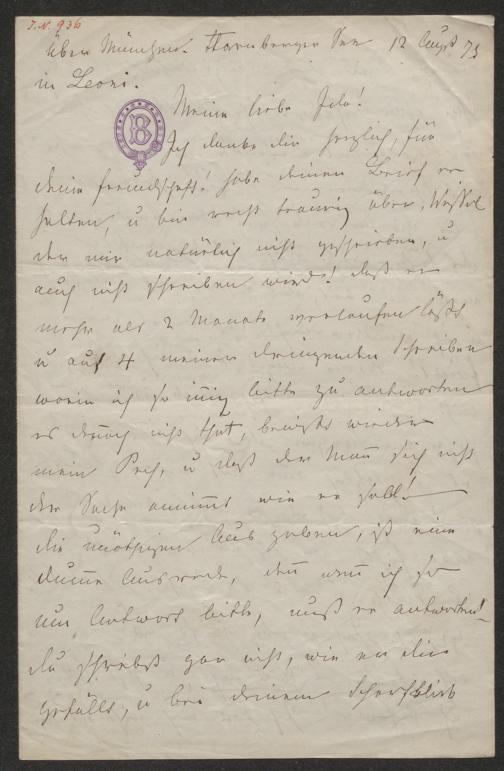 J. N. 936
über München. Starnberger See 12 Augst 75
in Leoni.
B
Meine liebe Fela!
Ich danke dir herzlich, für
deine freundschaft! habe deinen Brief er
halten, u bin recht traurig über,
der mir natürlich nicht geschrieben, u
auch nicht schreiben wird! daß er
mehr als 2 Monate verlaufen läßt
u auf 4 meiner dringenden Schreiben
worin ich so iñig bitte zu antworten
es deñoch nicht thut, beweißt wieder
mein Pech, u daß der Mañ sich nicht
der Sache añimmt wie er soll!
die unöthigen Ausgaben, ist eine
dume Ausrede, deñ weñ ich so
um Antwort bitte, muß er antworten!
du schreibst gar nicht, wie er dir
gefällt, u bei deinem Scharfblick